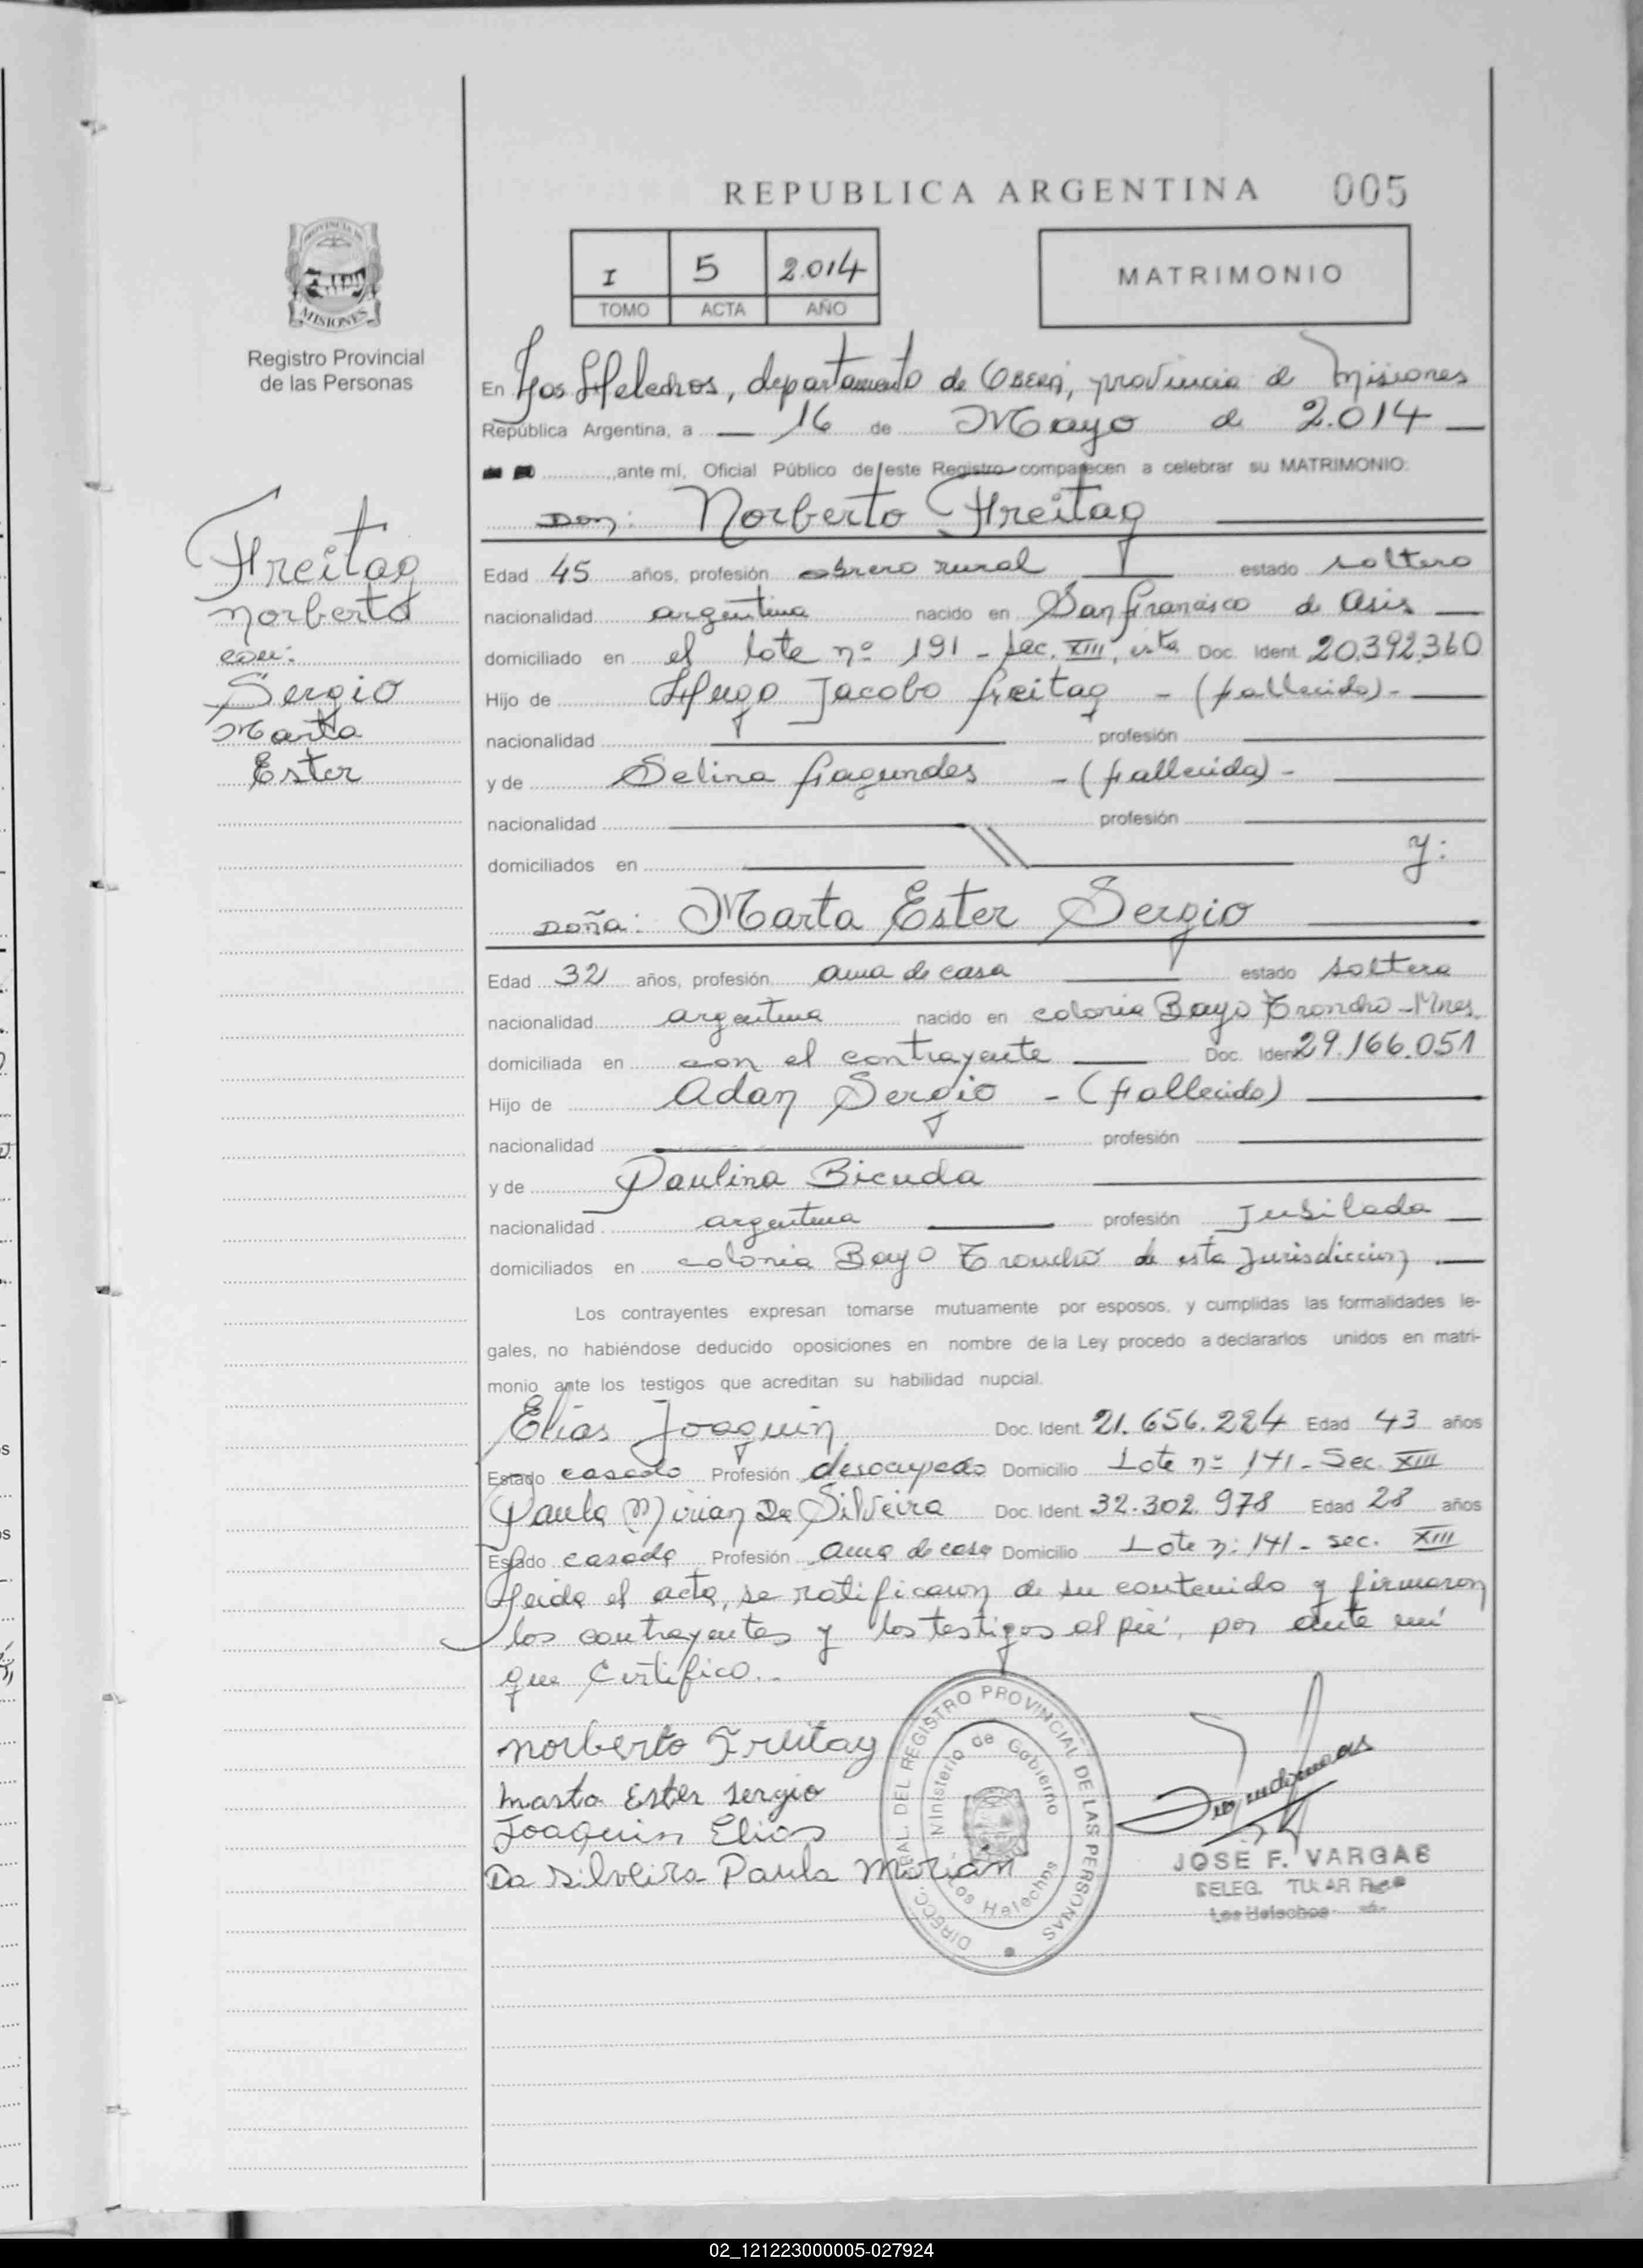 REPUBLICA ARGENTINA 005
I 5 2.014
TOMO ACTA AÑO
MATRIMONIO
PROVINCIA DE
MISIONES
Registro Provincial
de las Personas
En Los Helechos, departamento de OBERÁ, provincia de Misiones
República Argentina, a 16 de Mayo de 2.014
ante mí, Oficial Público de este Registro comparecen a celebrar su MATRIMONIO:
Don: Norberto Freitag
Freitag
Norberto
con:
Sergio
Marta
Ester
Edad 45 años, profesión obrero rural estado soltero
nacionalidad argentina nacido en San francisco de asis
domiciliado en el lote nº 191 - sec. XIII, esta Doc. Ident. 20.392.360
Hijo de Hugo Jacobo freitag - (fallecido) -
nacionalidad profesión
y de Selina fagundes - (fallecida) -
nacionalidad profesión
domiciliados en y:
DOÑA: Marta Ester Sergio
Edad 32 años, profesión ama de casa estado soltera
nacionalidad argentina nacido en colonia Bayo Troncho - Mnes.
domiciliada en con el contrayente Doc. Ident. 29.166.051
Hijo de Adan Sergio - (fallecido)
nacionalidad profesión
y de Paulina Bicuda
nacionalidad argentina profesión Jubilada
domiciliados en colonia Bayo Troncho de esta Jurisdiccion
Los contrayentes expresan tomarse mutuamente por esposos, y cumplidas las formalidades le-
gales, no habiéndose deducido oposiciones en nombre de la Ley procedo a declararlos unidos en matri-
monio ante los testigos que acreditan su habilidad nupcial.
Elias Joaquin Doc. Ident. 21.656.224 Edad 43 años
Estado casado Profesión desocupado Domicilio Lote nº 141 - Sec. XIII
Paula Mirian Da Silveira Doc. Ident. 32.302.978 Edad 28 años
Estado casada Profesión ama de casa Domicilio Lote n: 141 - sec. XIII
Leida el acta, se ratificaron de su contenido y firmaron
los contrayentes y los testigos al pié, por ante mí
que Certifico..
norberto Freitag
Marta Ester sergio
Joaquin Elias
Da Silveira Paula Mirian
DIRECC. GRAL. DEL REGISTRO PROVINCIAL DE LAS PERSONAS
Ministerio de Gobierno
Los Helechos
JOSE F. VARGAS
DELEG. TITULAR
Los Helechos
02_121223000005-027924